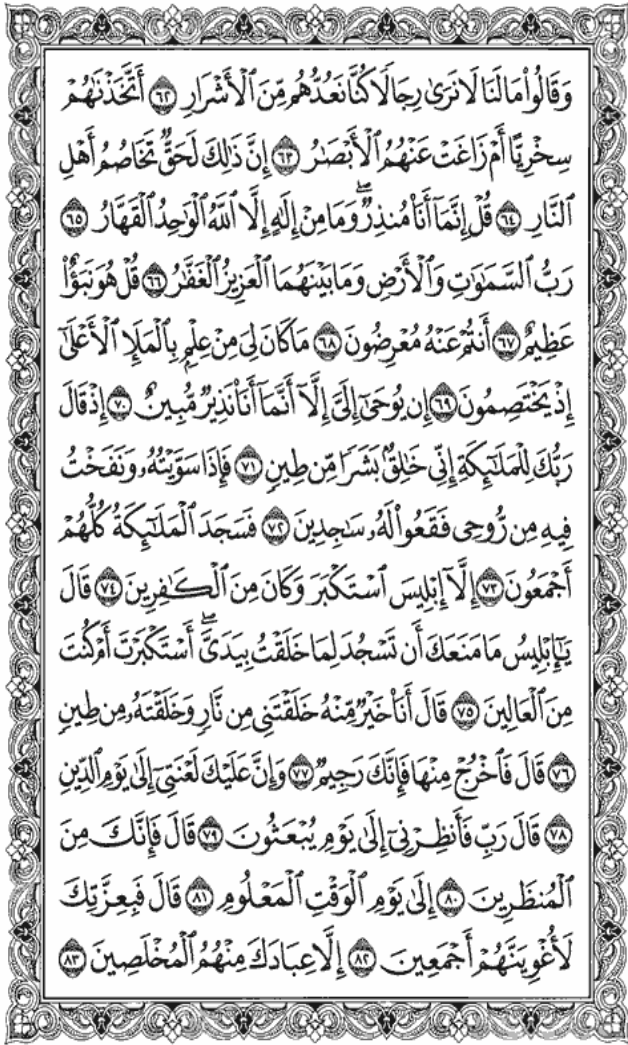 وَقَالُوا۟ مَا لَنَا لَا نَرَىٰ رِجَالًا كُنَّا نَعُدُّهُم مِّنَ ٱلْأَشْرَارِ ٦٢ أَتَّخَذْنَٰهُمْ
سِخْرِيًّا أَمْ زَاغَتْ عَنْهُمُ ٱلْأَبْصَٰرُ ٦٣ إِنَّ ذَٰلِكَ لَحَقٌّ تَخَاصُمُ أَهْلِ
ٱلنَّارِ ٦٤ قُلْ إِنَّمَآ أَنَا۠ مُنذِرٌ ۖ وَمَا مِنْ إِلَٰهٍ إِلَّا ٱللَّهُ ٱلْوَٰحِدُ ٱلْقَهَّارُ ٦٥
رَبُّ ٱلسَّمَٰوَٰتِ وَٱلْأَرْضِ وَمَا بَيْنَهُمَا ٱلْعَزِيزُ ٱلْغَفَّٰرُ ٦٦ قُلْ هُوَ نَبَؤٌا۟
عَظِيمٌ ٦٧ أَنتُمْ عَنْهُ مُعْرِضُونَ ٦٨ مَا كَانَ لِىَ مِنْ عِلْمٍۭ بِٱلْمَلَإِ ٱلْأَعْلَىٰٓ
إِذْ يَخْتَصِمُونَ ٦٩ إِن يُوحَىٰٓ إِلَىَّ إِلَّآ أَنَّمَآ أَنَا۠ نَذِيرٌ مُّبِينٌ ٧٠ إِذْ قَالَ
رَبُّكَ لِلْمَلَٰٓئِكَةِ إِنِّى خَٰلِقٌۢ بَشَرًا مِّن طِينٍ ٧١ فَإِذَا سَوَّيْتُهُۥ وَنَفَخْتُ
فِيهِ مِن رُّوحِى فَقَعُوا۟ لَهُۥ سَٰجِدِينَ ٧٢ فَسَجَدَ ٱلْمَلَٰٓئِكَةُ كُلُّهُمْ
أَجْمَعُونَ ٧٣ إِلَّآ إِبْلِيسَ ٱسْتَكْبَرَ وَكَانَ مِنَ ٱلْكَٰفِرِينَ ٧٤ قَالَ
يَٰٓإِبْلِيسُ مَا مَنَعَكَ أَن تَسْجُدَ لِمَا خَلَقْتُ بِيَدَىَّ ۖ أَسْتَكْبَرْتَ أَمْ كُنتَ
مِنَ ٱلْعَالِينَ ٧٥ قَالَ أَنَا۠ خَيْرٌ مِّنْهُ خَلَقْتَنِى مِن نَّارٍ وَخَلَقْتَهُۥ مِن طِينٍ
٧٦ قَالَ فَٱخْرُجْ مِنْهَا فَإِنَّكَ رَجِيمٌ ٧٧ وَإِنَّ عَلَيْكَ لَعْنَتِىٓ إِلَىٰ يَوْمِ ٱلدِّينِ
٧٨ قَالَ رَبِّ فَأَنظِرْنِىٓ إِلَىٰ يَوْمِ يُبْعَثُونَ ٧٩ قَالَ فَإِنَّكَ مِنَ
ٱلْمُنظَرِينَ ٨٠ إِلَىٰ يَوْمِ ٱلْوَقْتِ ٱلْمَعْلُومِ ٨١ قَالَ فَبِعِزَّتِكَ
لَأُغْوِيَنَّهُمْ أَجْمَعِينَ ٨٢ إِلَّا عِبَادَكَ مِنْهُمُ ٱلْمُخْلَصِينَ ٨٣